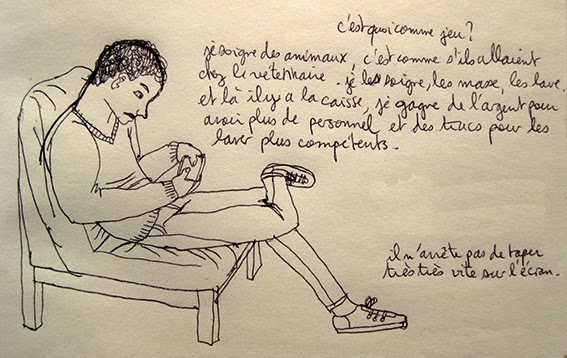 c'est quoi comme jeu?
je soigne des animaux, c'est comme s'ils allaient
chez le vétérinaire. je les soigne, les masse, les lave.
et là il y a la caisse, je gagne de l'argent pour
avoir plus de personnel et des trucs pour les
laver plus compétents.
il n'arrête pas de taper
très très vite sur l'écran.